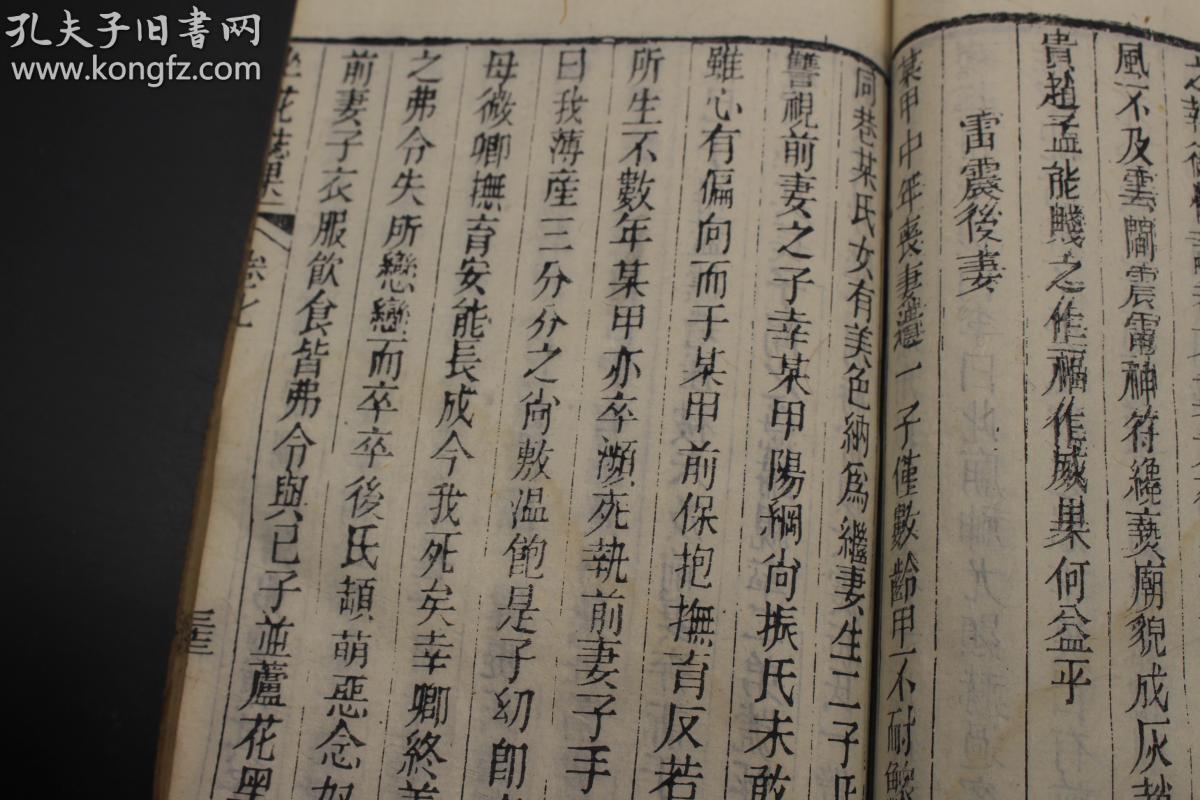 孔夫子旧书网
www.kongfz.com
風不及雲間震電神符繞爇廟貌成灰
貴趙孟能賤之作福作威果何益乎
雷震後妻
某甲中年喪妻遺一子僅數齡甲不耐鰥
同巷某氏女有美色納為繼妻生二子氏
讐視前妻之子幸某甲陽綱尙振氏未敢
雖心有偏向而于某甲前保抱撫育反若
所生不數年某甲亦卒瀕死執前妻子手
曰我薄産三分分之尙敷温飽是子幼卽
母微卿撫育安能長成今我死矣幸卿終善
之弗令失所戀戀而卒卒後氏頓萌惡念
前妻子衣服飲食皆弗令與已子並蘆花
坐花誌果
卷七